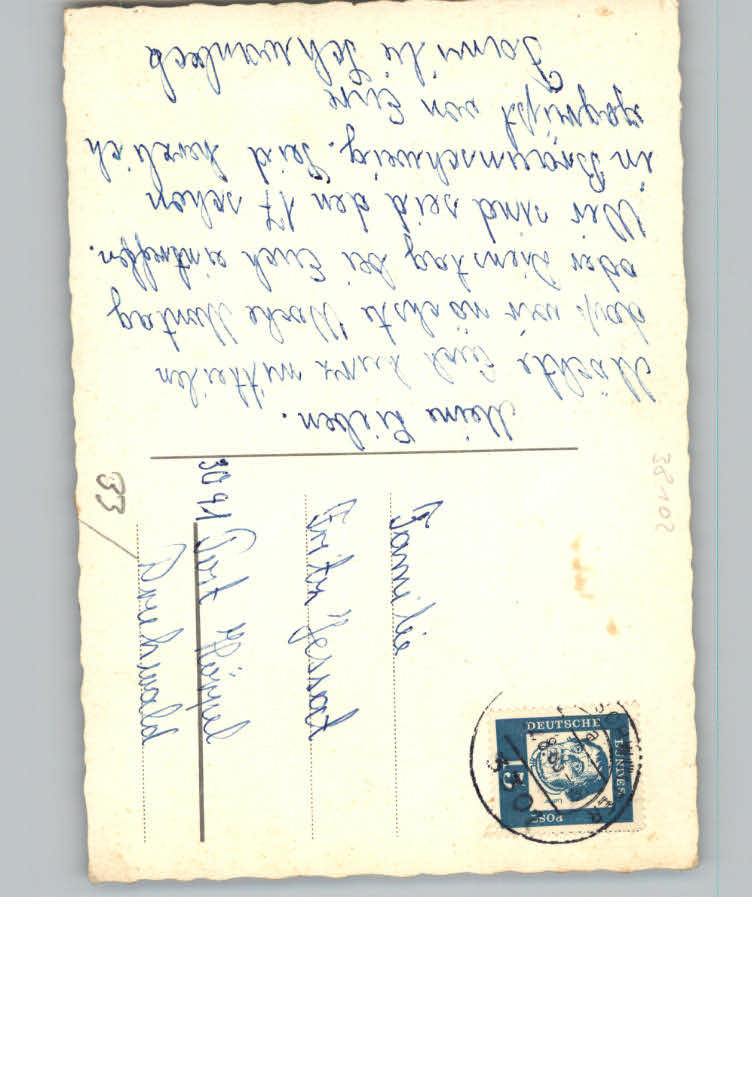 Meine Lieben.
Möchte Euch kurz mitteilen
daß wir nächste Woche Montag
oder Dienstag bei Euch eintreffen.
Wir sind seid den 17 schon
in Braunschweig. Seid herzlich
gegrüßt von Eure
Familie Schwanbeck
Familie
Fritz Jessat
3091 Post Hönisch
33
38102
DEUTSCHE
BUNDES
POST
15